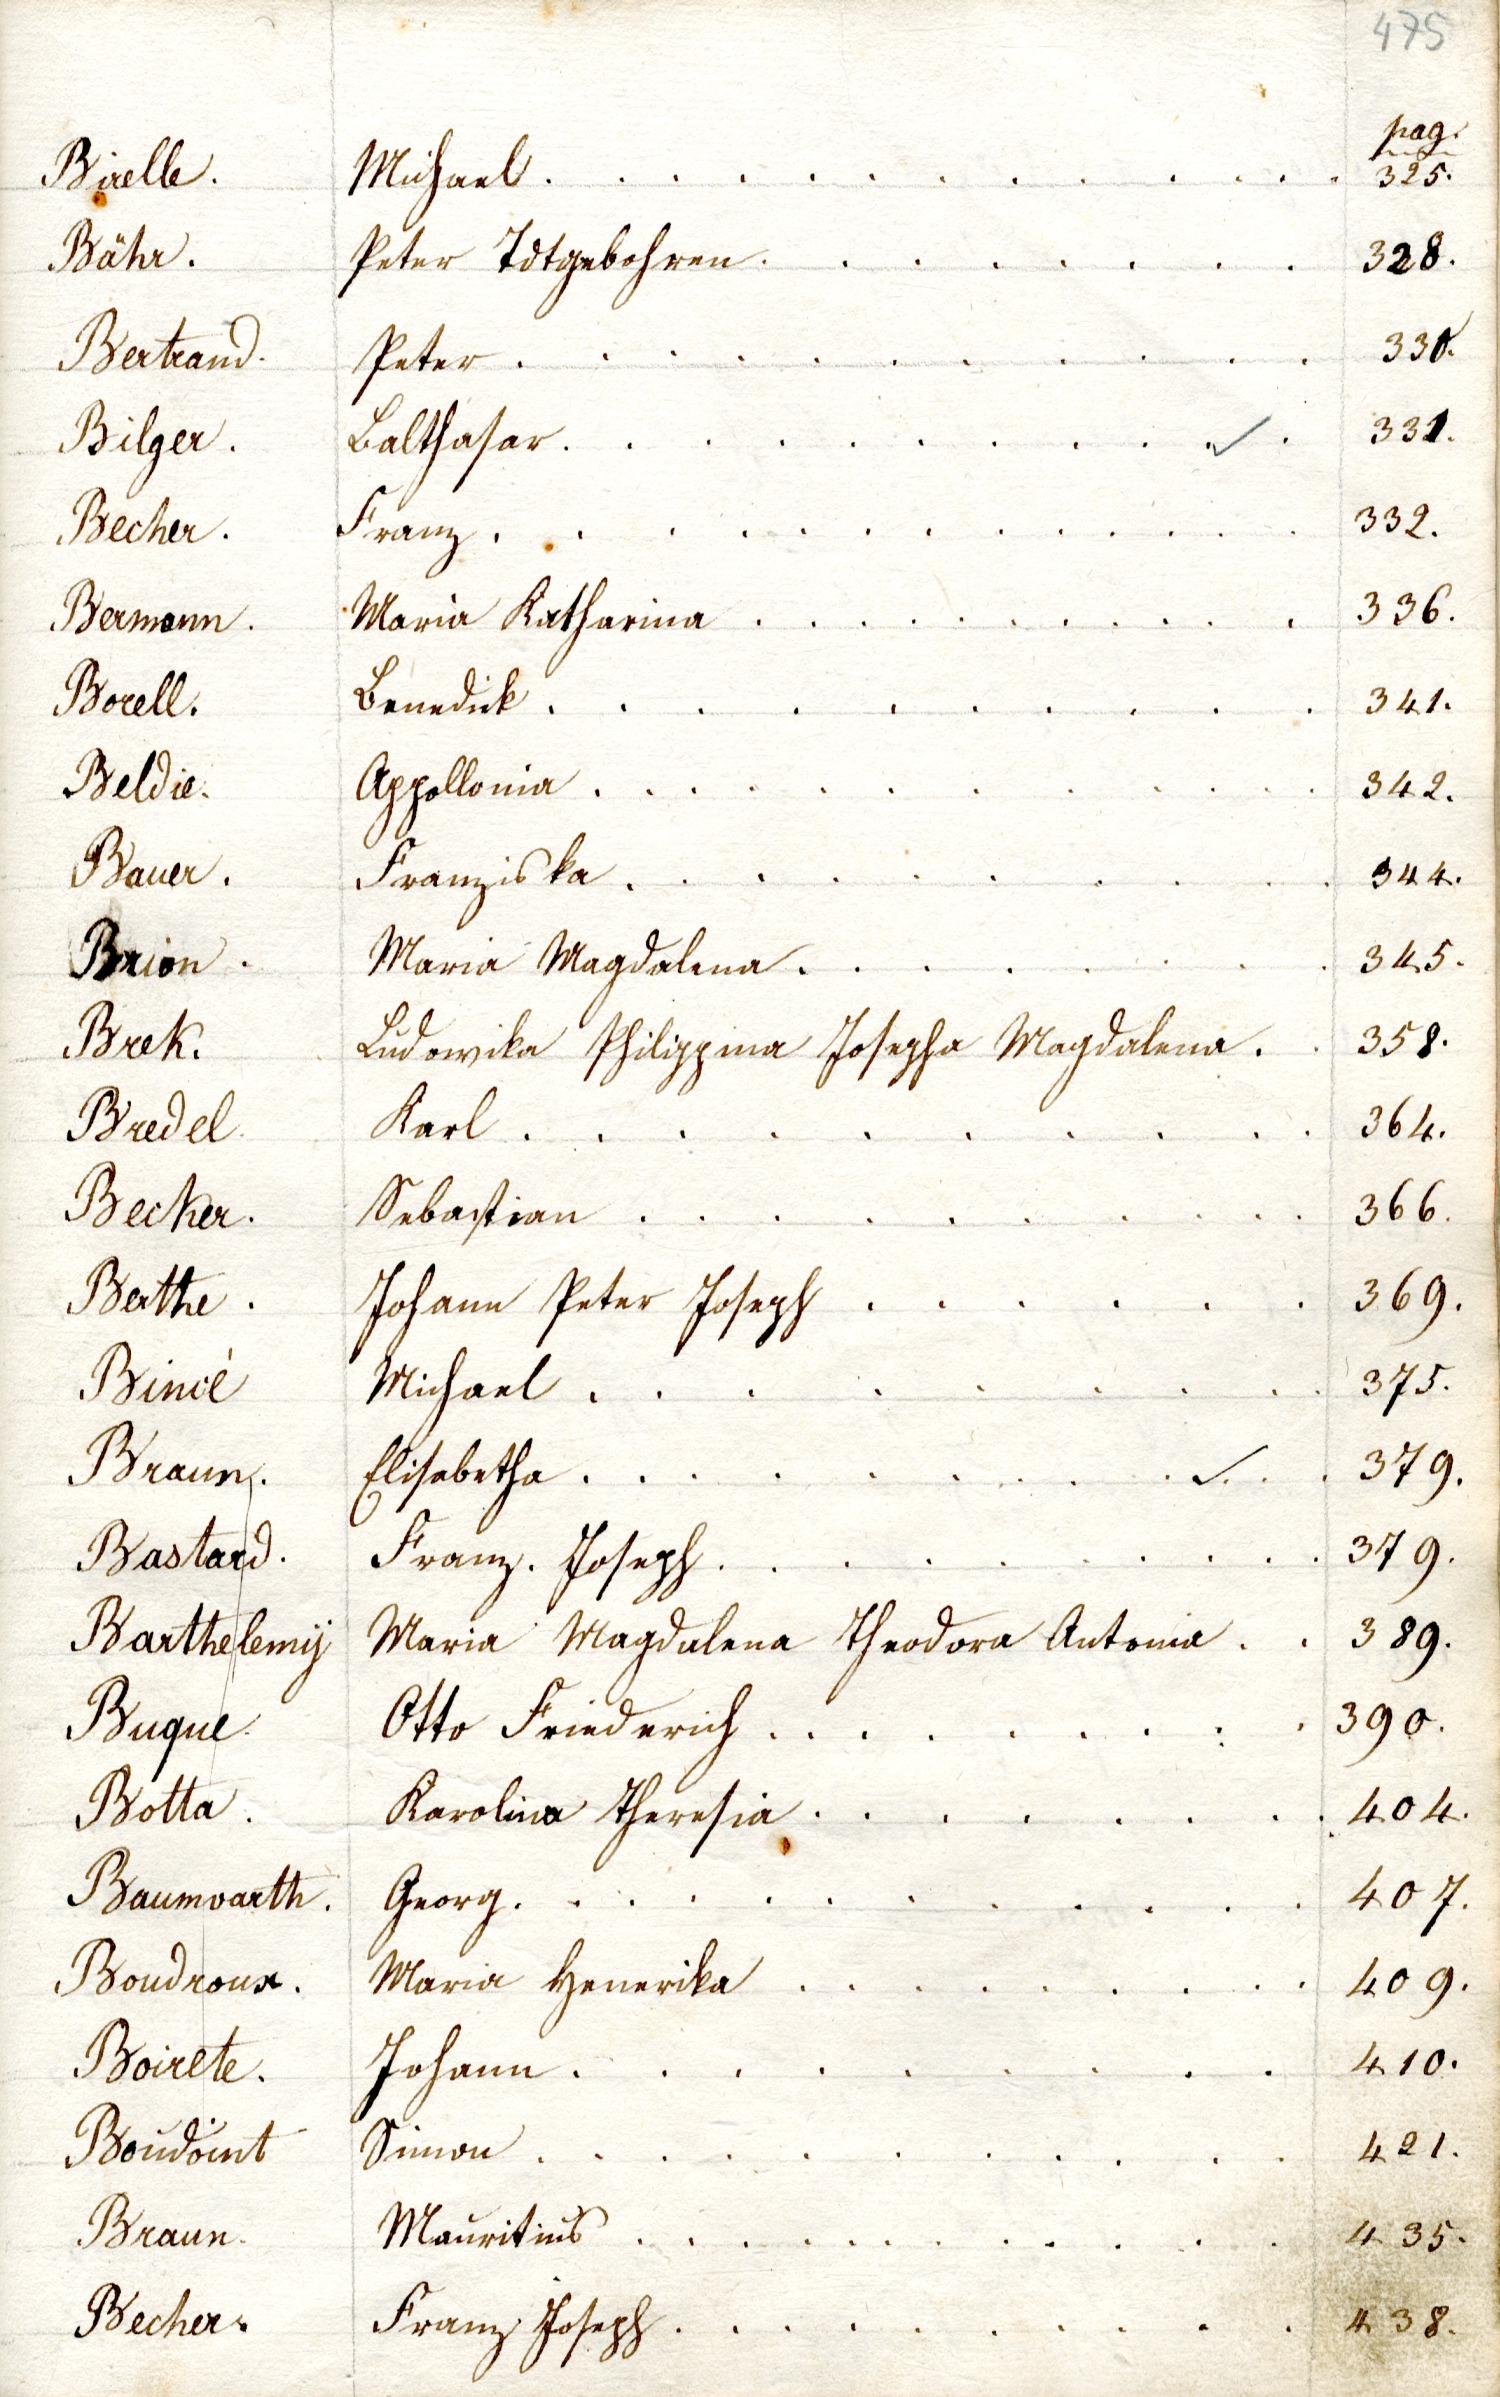 475
pag.
Birelle. Michael. 325.
Bähr. Peter Todtgebohren. 328.
Bertrand. Peter. 330.
Bilger. Balthasar. ✓ 331.
Becher. Franz. 332.
Bermann. Maria Katharina 336.
Borell. Benedick. 341.
Beldie. Appollonia. 342.
Bauer. Franziska. 344.
Brion. Maria Magdalena. 345.
Brek. Ludowika Philippina Josepha Magdalena. 358.
Bredel. Karl. 364.
Becker. Sebastian 366.
Berthe. Johann Peter Joseph 369.
Binié Michael. 375.
Braun. Elisabetha. ✓ 379.
Bastard. Franz. Joseph. 379.
Barthelemÿ Maria Magdalena Theodora Antonia. 389.
Buque. Otto Friederich. 390.
Botta. Karolina Theresia. 404.
Baumvarth. Georg. 407.
Boudroux. Maria Henerika 409.
Boirete. Johann. 410.
Boudoint Simon. 421.
Braun. Mauritius 435.
Becher. Franz Joseph. 438.